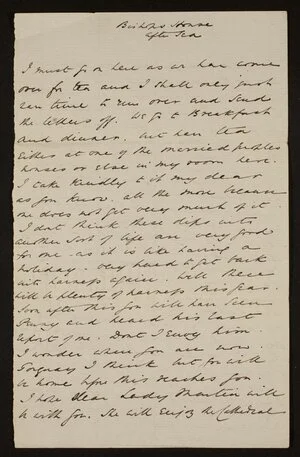 Bishops House
after Tea
I must go on here as we have come
over for tea and I shall only just
have time to run over and send
the letters off. We go to Breakfast
and dinner. but have tea
Either at one of the married peoples
houses or else in my room here.
I take kindly to it my dear
as you know. all the more because
one does not get very much of it.
I dont think these dips into
another sort of life are very good
for me. as it is like having a
holiday. very hard to get back
into harness again. Well there
will be plenty of harness this year.
Soon after this you will have seen
and heard his last
report of me. Dont I Envy him.
I wonder where you are now.
Torquay I think but you will
be home before this reaches you
I hope dear Lady Martin will
be with you. She will Enjoy the Cathedral